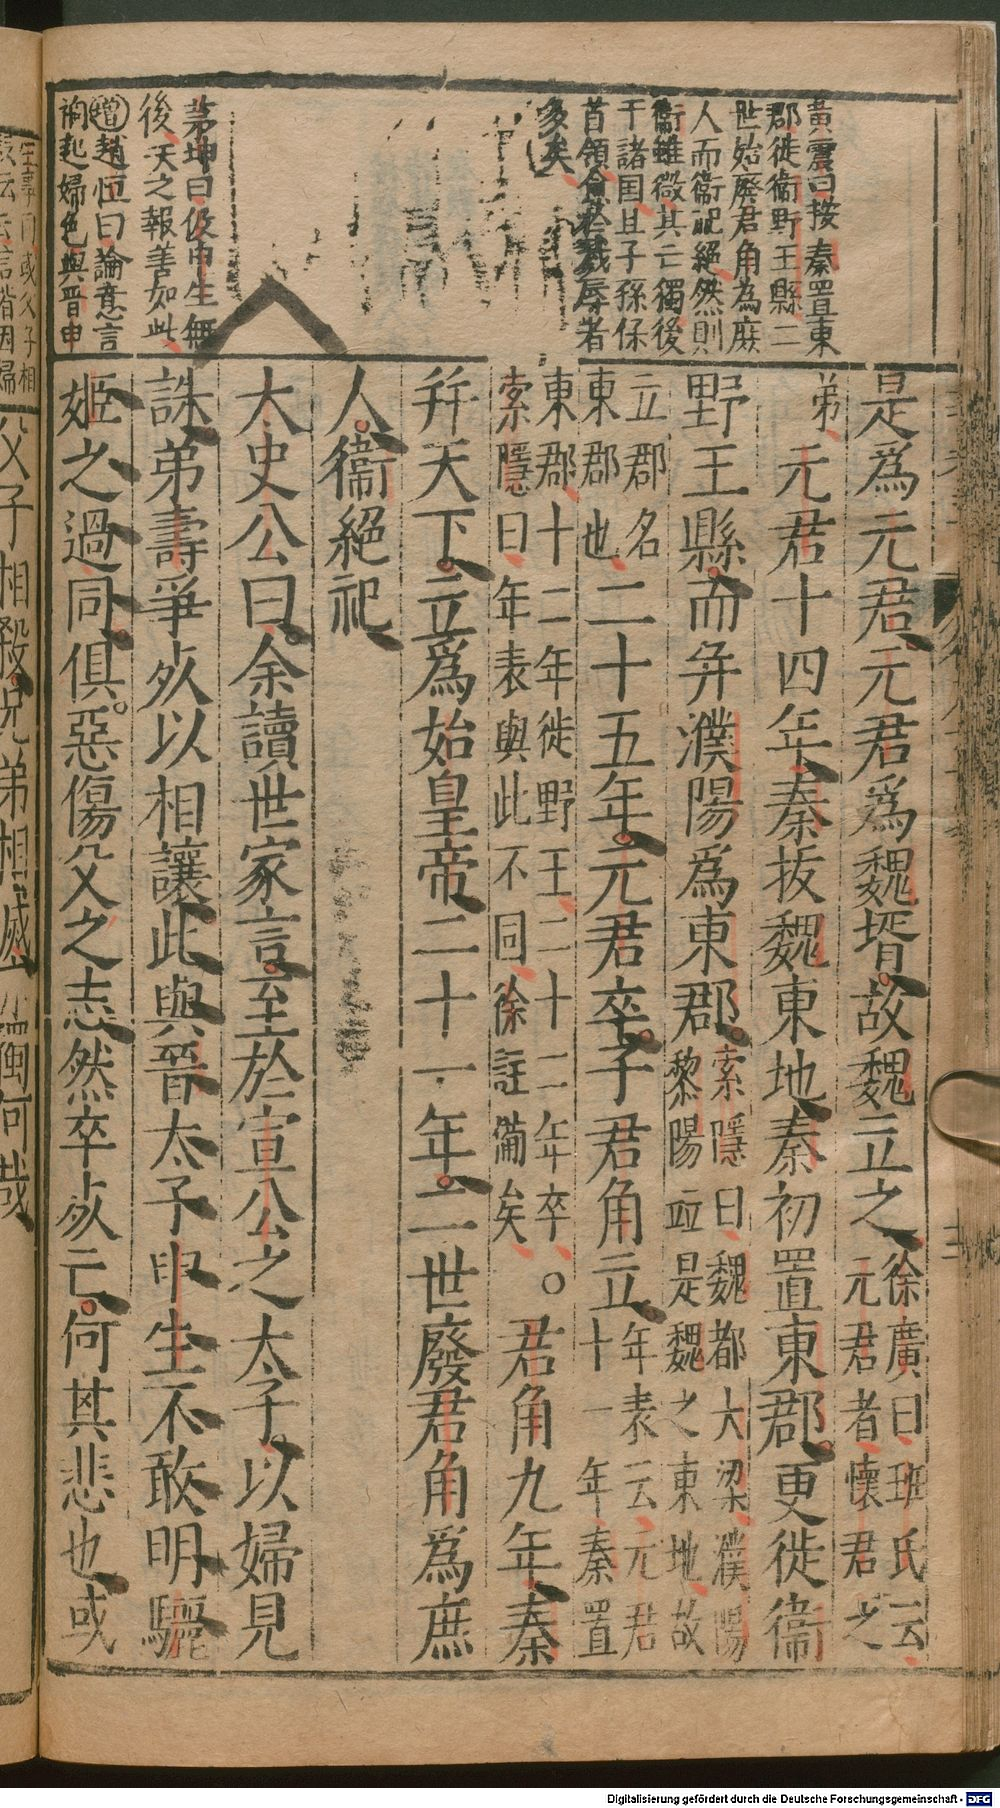 黃震曰按秦置東
郡徙衞野王縣二
世始廢君角為庶
人而衞祀絕然則
衞雖微其亡獨後
于諸国且子孫保
首領免於戮辱者
多矣
茅坤曰伋申生無
後天之報善如此
增趙恒曰論意言
袧起婦色與晋申
是爲元君元君爲魏壻故魏立之徐廣曰班氏云元君者懷君之
弟元君十四年秦拔魏東地秦初置東郡更徙衞
野王縣而并濮陽爲東郡索隱曰魏都大梁濮陽黎陽並是魏之東地故
立郡名東郡也二十五年元君卒子君角立年表云元君十一年秦置
東郡十二年徙野王二十二年卒索隱曰年表與此不同徐註備矣○君角九年秦
并天下立爲始皇帝二十一年二世廢君角爲庶
人衞絕祀
太史公曰余讀世家言至於宣公之太子以婦見
誅弟壽爭死以相讓此與晉太子申生不敢明驪
姬之過同俱惡傷父之志然卒死亡何其悲也或
父子相殺兄弟相滅亦獨何哉
Digitalisierung gefördert durch die Deutsche Forschungsgemeinschaft - DFG